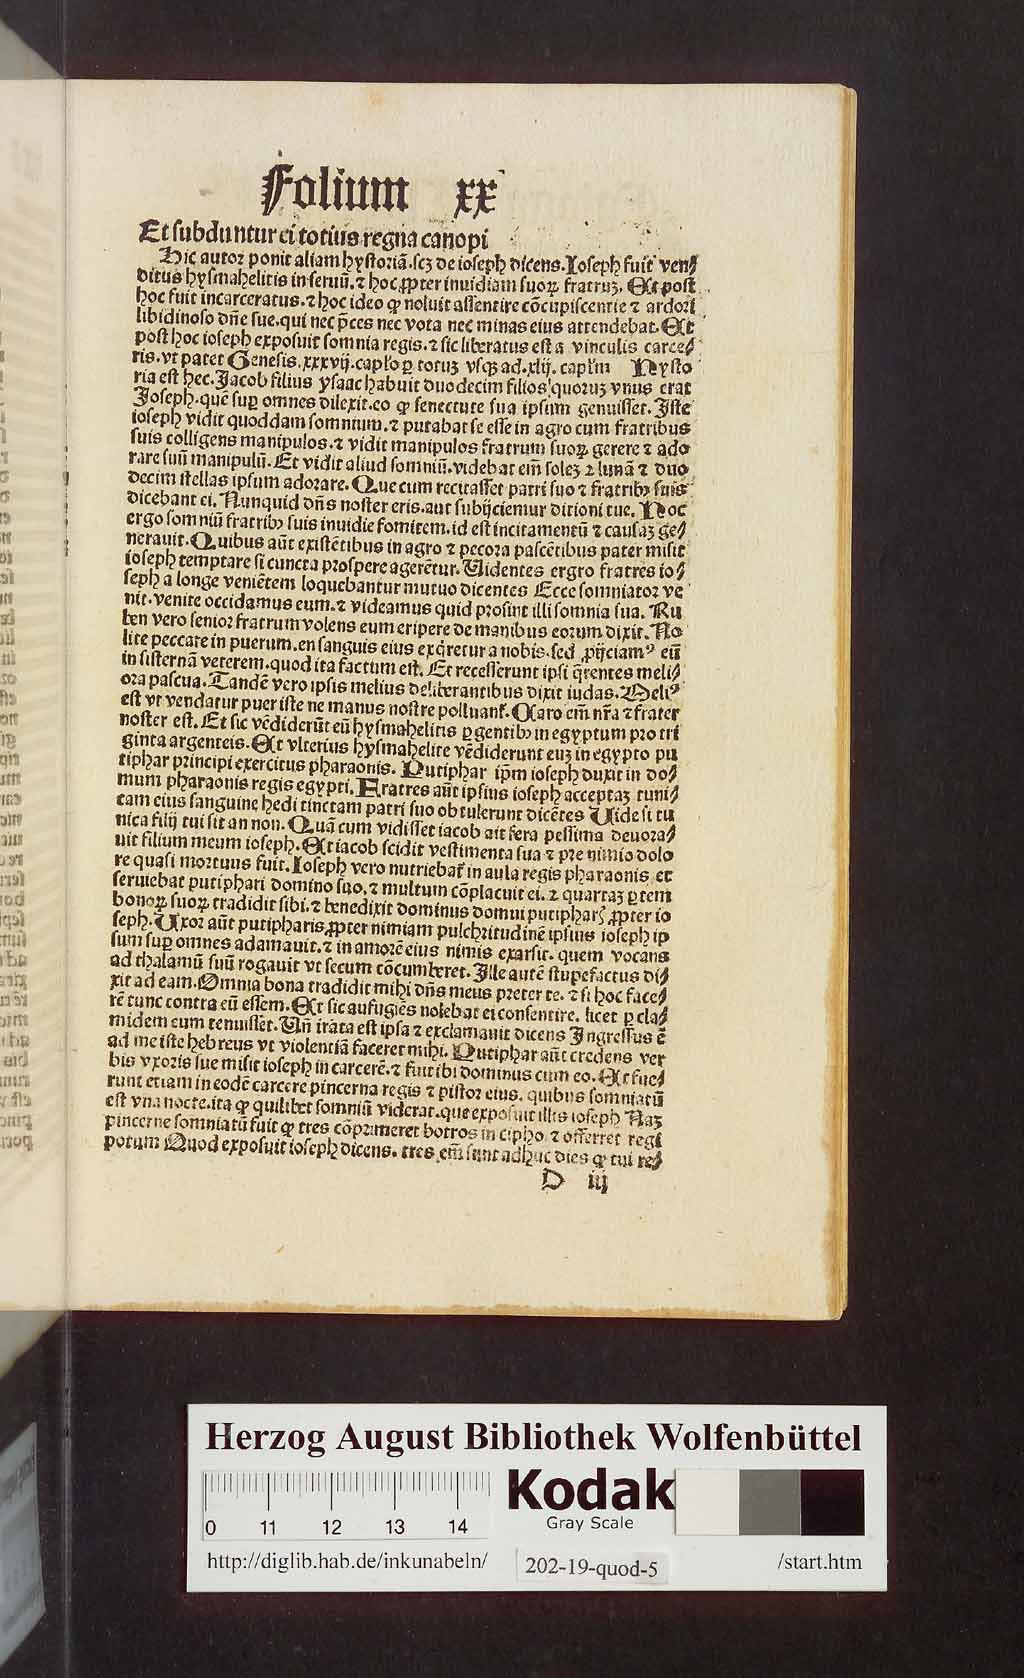 Folium xx
Et subduntur ei totius regna canopi
Hic autor ponit aliam hystoriā.scz de ioseph dicens.Ioseph fuit ven⸗
ditus hysmahelitis in seruū.⁊ hoc ꝓpter inuidiam suoꝝ fratruz. Et post
hoc fuit incarceratus.⁊ hoc ideo ꝙ noluit assentire cōcupiscentie ⁊ ardori
libidinoso dn̄e sue.qui nec p̄ces nec vota nec minas eius attendebat.Et
post hoc ioseph exposuit somnia regis.⁊ sic liberatus est a vinculis carce⸗
ris.vt patet Genesis.xxxvij.capło ꝑ totuz vsqꝫ ad.xlij. capłm Hysto
ria est hec.Jacob filius ysaac habuit duodecim filios quoruz vnus erat
Joseph.quē suꝑ omnes dilexit.eo ꝙ senectute sua ipsum genuisset. Iste
ioseph vidit quoddam somnium.⁊ putabat se esse in agro cum fratribus
suis colligens manipulos.⁊ vidit manipulos fratrum suoꝝ gerere ⁊ ado
rare suū manipulū.Et vidit aliud somniū.videbat em̄ solez ⁊ lunā ⁊ duo
decim stellas ipsum adorare.Que cum recitasset patri suo ⁊ fratribꝫ suis
dicebant ei.Nunquid dn̄s noster eris.aut subijciemur ditioni tue. Hoc
ergo somniū fratribꝫ suis inuidie fomitem.id est incitamentū ⁊ causaz ge⸗
nerauit.Quibus aūt existētibus in agro ⁊ pecora pascētibus pater misit
ioseph temptare si cuncta prospere agerētur.Uidentes ergro fratres io⸗
seph a longe veniētem loquebantur mutuo dicentes Ecce somniator ve
nit.venite occidamus eum.⁊ videamus quid prosint illi somnia sua. Ru
ben vero senior fratrum volens eum eripere de manibus eorum dixit.No
lite peccare in puerum.en sanguis eius exq̄retur a nobis.sed ꝓijciamꝰ eū
in sisternā veterem.quod ita factum est. Et recesserunt ipsi q̄rentes meli⸗
ora pascua.Tandē vero ipsis melius deliberantibus dixit iudas.Meliꝰ
est vt vendatur puer iste ne manus nostre polluant̄. Caro em̄ nr̄a ⁊ frater
noster est.Et sic vēdiderūt eū hysmahelitis ꝑ gentibꝫ in egyptum pro tri
ginta argenteis.Et vlterius hysmahelite vēdiderunt euz in egypto pu
tiphar principi exercitus pharaonis. Putiphar ip̄m ioseph duxit in do⸗
mum pharaonis regis egypti.Fratres aūt ipsius ioseph acceptaz tuni⸗
cam eius sanguine hedi tinctam patri suo obtulerunt dicētes Uide si tu
nica filij tui sit an non.Quā cum vidisset iacob ait fera pessima deuora⸗
uit filium meum ioseph.Et iacob scidit vestimenta sua ⁊ pre nimio dolo
re quasi mortuus fuit.Ioseph vero nutriebat̄ in aula regis pharaonis et
seruiebat putiphari domino suo.⁊ multum cōplacuit ei.⁊ quartaz ꝑtem
bonoꝝ suoꝝ tradidit sibi.⁊ benedixit dominus domui putipharꝭ ꝓpter io
seph.Uxor aūt putipharis ꝓpter nimiam pulchritudinē ipsius ioseph ip
sum suꝑ omnes adamauit.⁊ in amorē eius nimis exarsit. quem vocans
ad thalamū suū rogauit vt secum cōcumberet.Ille autē stupefactus di⸗
xit ad eam.Omnia bona tradidit mihi dn̄s meus preter te.⁊ si hoc face⸗
rē tunc contra eū essem.Et sic aufugiēs nolebat ei consentire. licet ꝑ cla⸗
midem eum tenuisset.Un̄ irata est ipsa ⁊ exclamauit dicens Ingressus ē
ad me iste hebreus vt violentiā faceret mihi.Putiphar aūt credens ver
bis vxoris sue misit ioseph in carcerē.⁊ fuit ibi dominus cum eo.Et fue⸗
runt etiam in eodē carcere pincerna regis ⁊ pistor eius. quibus somniatū
est vna nocte.ita ꝙ quilibet somniū viderat.que exposuit illis ioseph Naz
pincerne somniatū fuit ꝙ tres cōprimeret botros in cipho ⁊ offerret regi
potum Quod exposuit ioseph dicens. tres em̄ sunt adhuc dies ꝙ tui re⸗
D iij
Herzog August Bibliothek Wolfenbüttel
Kodak
Gray Scale
0 11 12 13 14
http://diglib.hab.de/inkunabeln/ 202-19-quod-5 /start.htm